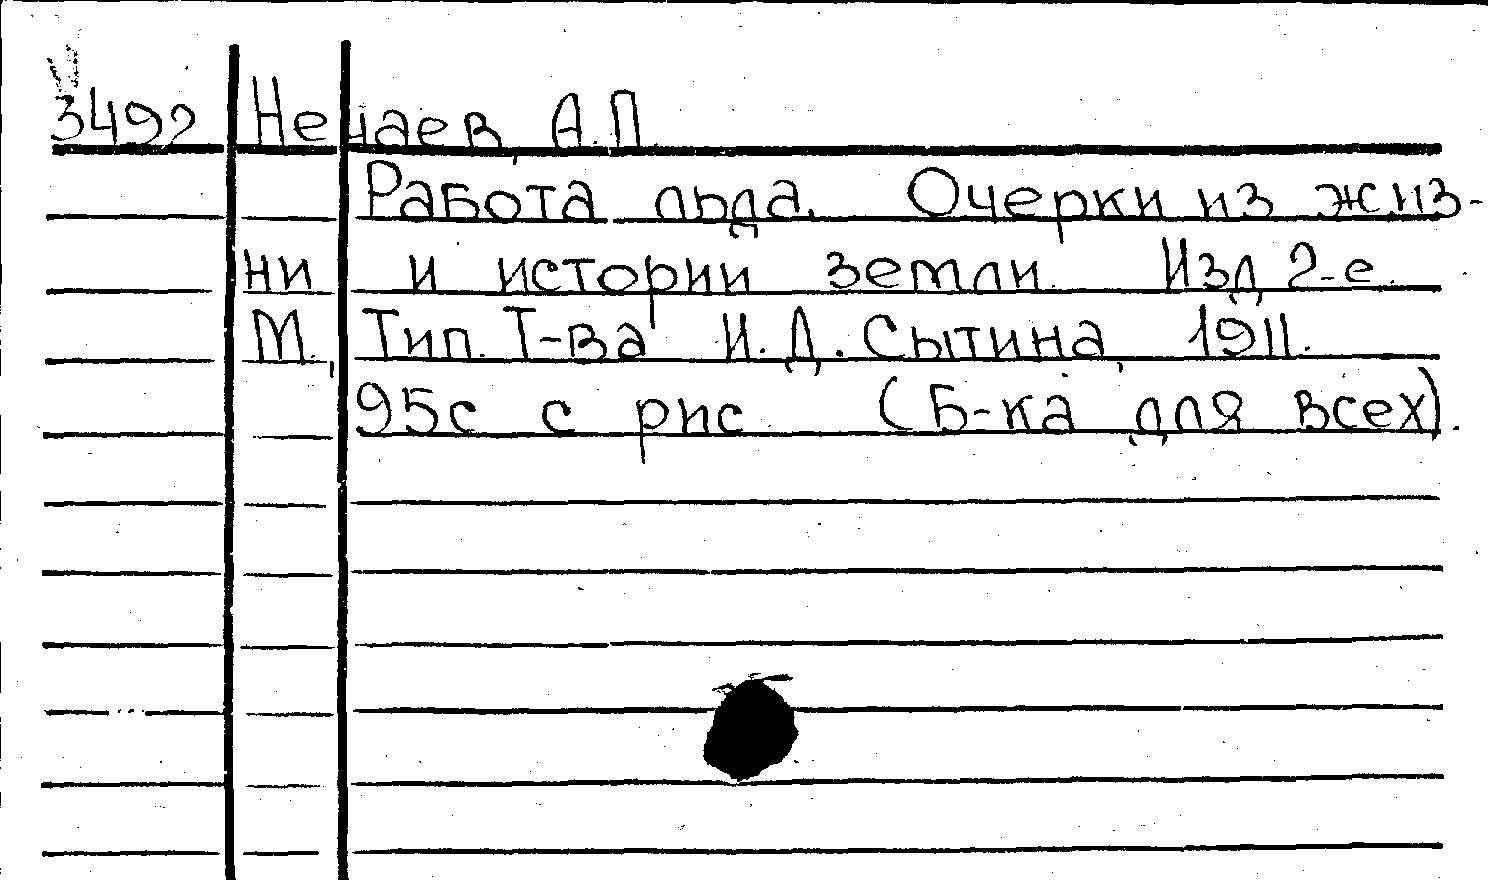 3492 Нечаев, А.П.
Работа льда. Очерки из жиз-
ни и истории земли. Изд 2-е.
М., Тип. Т-ва И.Д. Сытина, 1911.
95с с рис (Б-ка для всех).